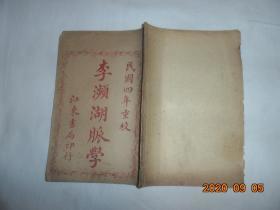 民國四年重校
李瀕湖脈學
江東書局印行
2020 09 05